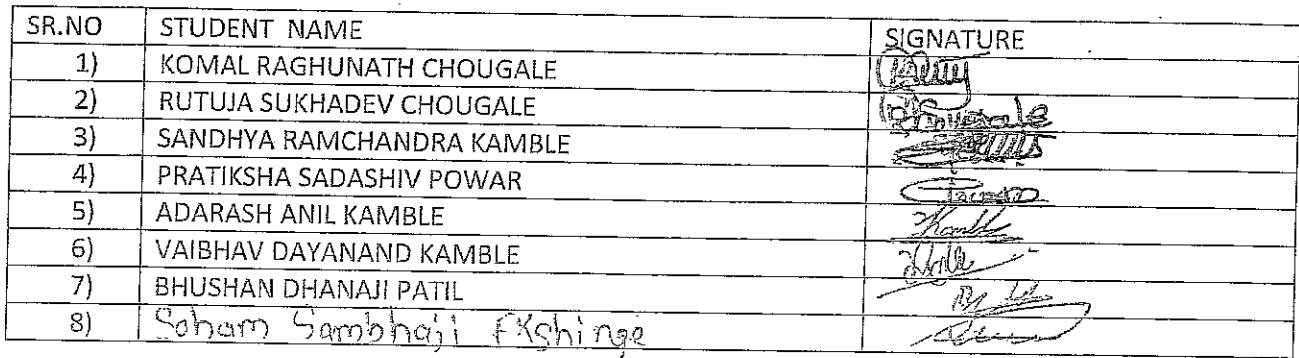 SR.NO STUDENT NAME SIGNATURE
1) KOMAL RAGHUNATH CHOUGALE
2) RUTUJA SUKHADEV CHOUGALE
3) SANDHYA RAMCHANDRA KAMBLE
4) PRATIKSHA SADASHIV POWAR
5) ADARASH ANIL KAMBLE
6) VAIBHAV DAYANAND KAMBLE
7) BHUSHAN DHANAJI PATIL
8) Soham Sambhaji Ekshinge